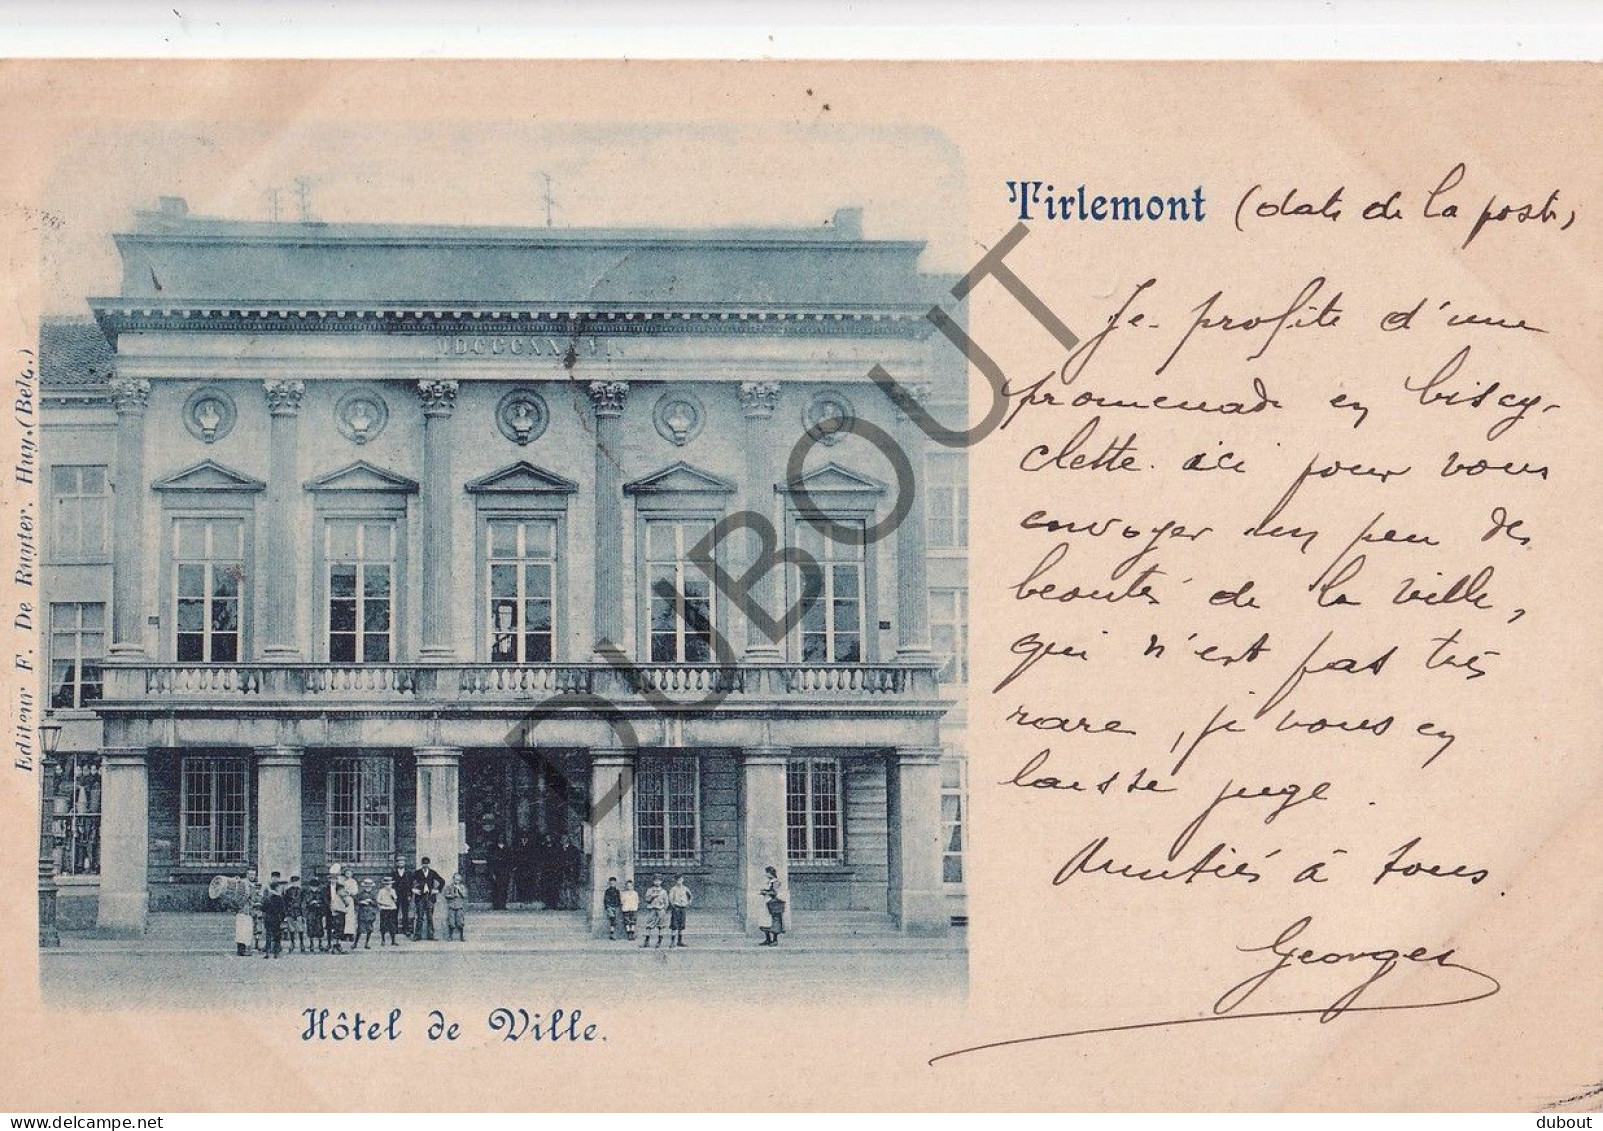 MDCCCXXXVI.
Editeur F. De Ruyter. Huy. (Belg.)
Hôtel de Ville.
Tirlemont (date de la poste)
Je profite d'une
promenade en biscy-
clette ici pour vous
envoyer un peu des
beautés de la ville,
qui n'est pas très
rare, je vous en
laisse juge.
Amitiés à tous.
Georges
DUBOUT
delcampe.net
dubout